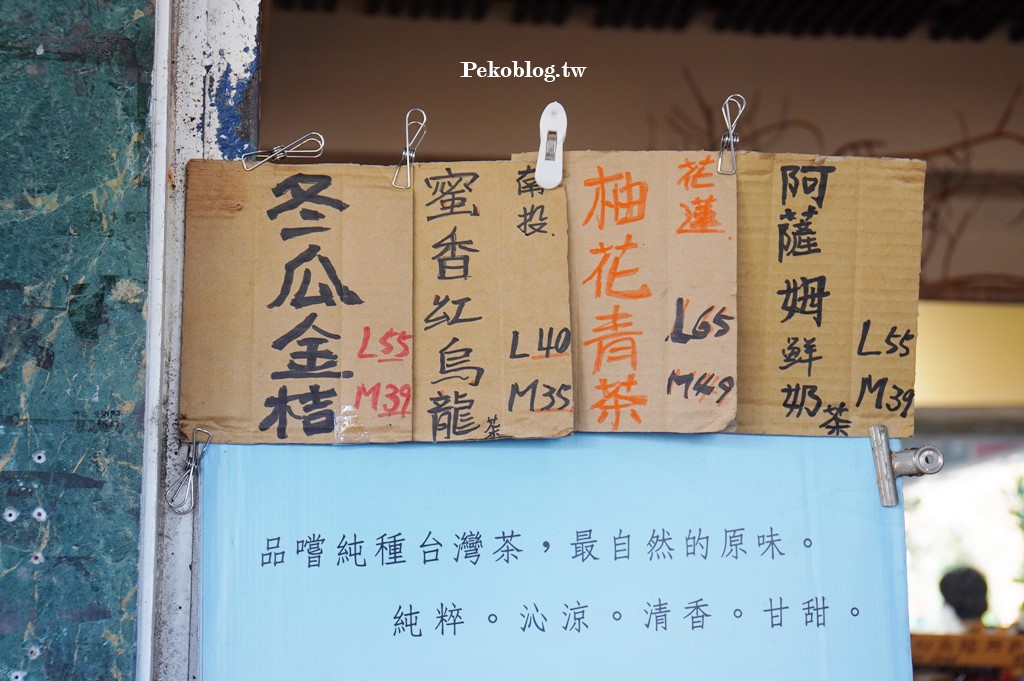 Pekoblog.tw
冬瓜金桔
L55
M39
南投
蜜香紅烏龍茶
L40
M35
花蓮
柚花青茶
L65
M49
阿薩姆鮮奶茶
L55
M39
品嚐純種台灣茶，最自然的原味。
純粹。沁涼。清香。甘甜。